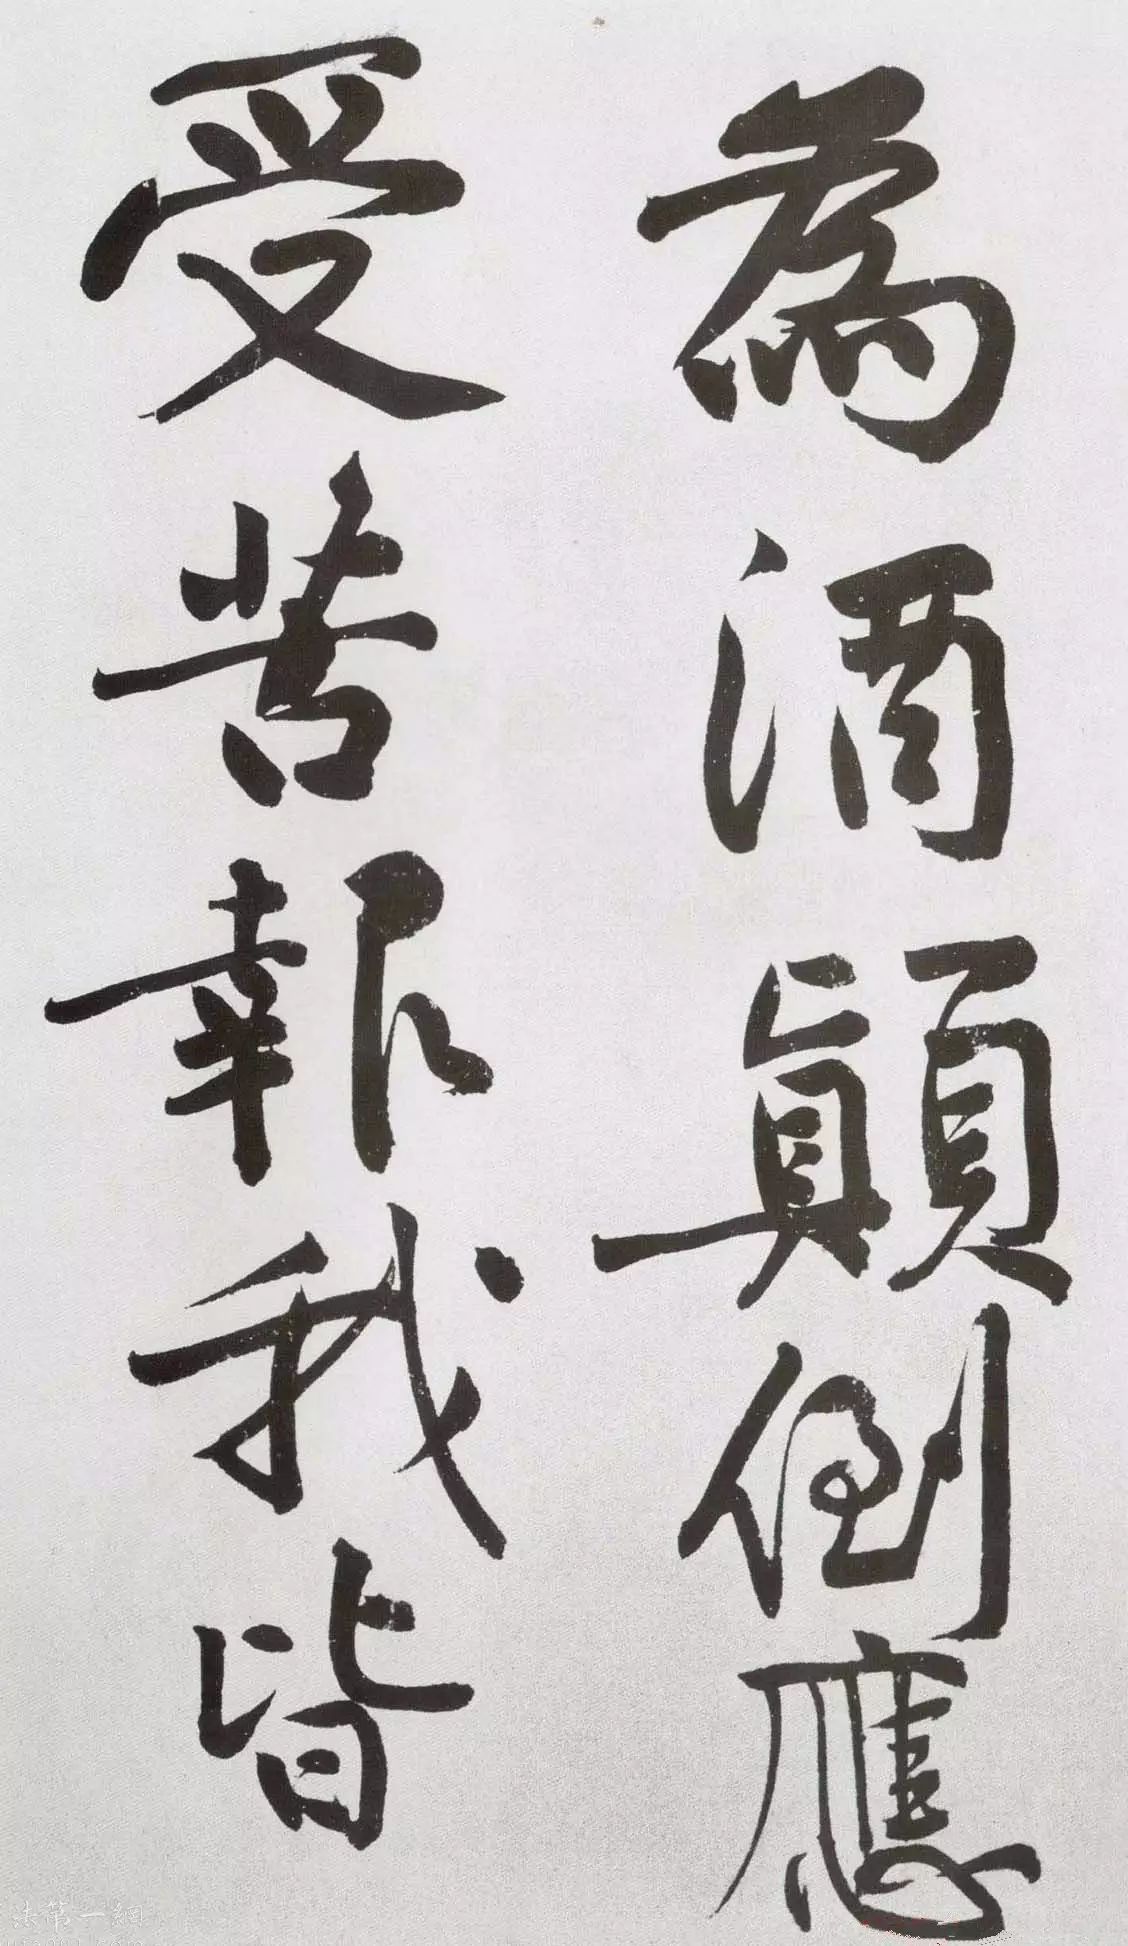 為酒顛倒應
受苦報我皆
法第一網